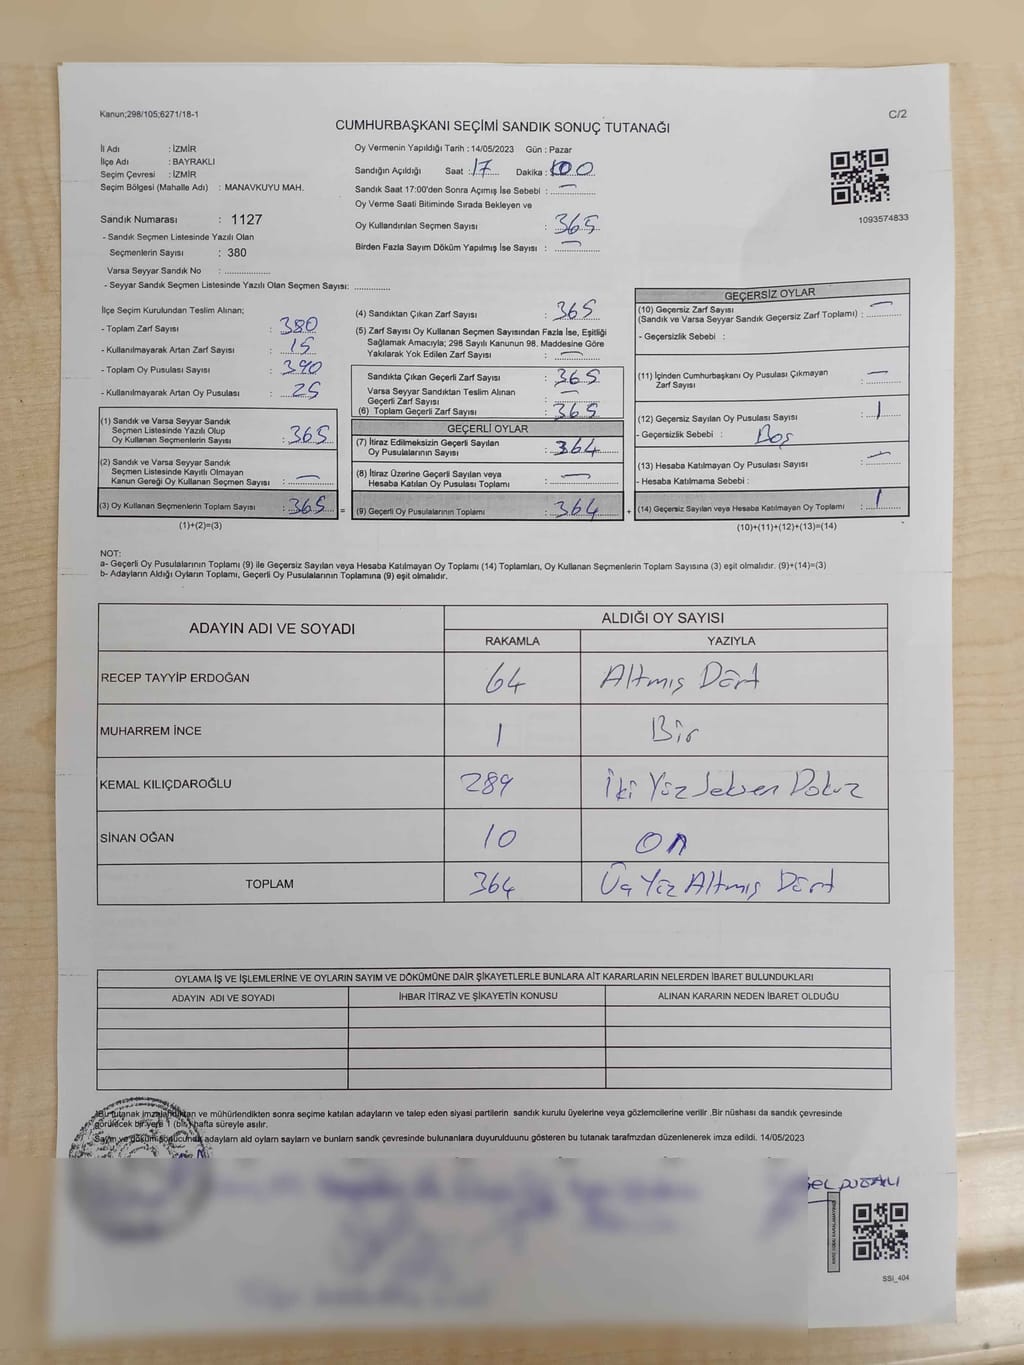 Kanun;298/105;6271/18-1
C/2
CUMHURBAŞKANI SEÇİMİ SANDIK SONUÇ TUTANAĞI
İl Adı : İZMİR
İlçe Adı : BAYRAKLI
Seçim Çevresi : İZMİR
Seçim Bölgesi (Mahalle Adı) : MANAVKUYU MAH.
Sandık Numarası : 1127
- Sandık Seçmen Listesinde Yazılı Olan
Seçmenlerin Sayısı : 380
Varsa Seyyar Sandık No : ..................
- Seyyar Sandık Seçmen Listesinde Yazılı Olan Seçmen Sayısı: ..............
Oy Vermenin Yapıldığı Tarih : 14/05/2023 Gün : Pazar
Sandığın Açıldığı Saat : 17 Dakika : 00
Sandık Saat 17:00'den Sonra Açımış İse Sebebi : —
Oy Verme Saati Bitiminde Sırada Bekleyen ve
Oy Kullandırılan Seçmen Sayısı : 365
Birden Fazla Sayım Döküm Yapılmış İse Sayısı : —
1093574833
İlçe Seçim Kurulundan Teslim Alınan;
- Toplam Zarf Sayısı : 380
- Kullanılmayarak Artan Zarf Sayısı : 15
- Toplam Oy Pusulası Sayısı : 390
- Kullanılmayarak Artan Oy Pusulası : 25
(1) Sandık ve Varsa Seyyar Sandık
Seçmen Listesinde Yazılı Olup
Oy Kullanan Seçmenlerin Sayısı : 365
(2) Sandık ve Varsa Seyyar Sandık
Seçmen Listesinde Kayıtlı Olmayan
Kanun Gereği Oy Kullanan Seçmen Sayısı : —
(3) Oy Kullanan Seçmenlerin Toplam Sayısı : 365 =
(1)+(2)=(3)
(4) Sandıktan Çıkan Zarf Sayısı : 365
(5) Zarf Sayısı Oy Kullanan Seçmen Sayısından Fazla İse, Eşitliği
Sağlamak Amacıyla; 298 Sayılı Kanunun 98. Maddesine Göre
Yakılarak Yok Edilen Zarf Sayısı : —
Sandıkta Çıkan Geçerli Zarf Sayısı : 365
Varsa Seyyar Sandıktan Teslim Alınan
Geçerli Zarf Sayısı : —
(6) Toplam Geçerli Zarf Sayısı : 365
GEÇERLİ OYLAR
(7) İtiraz Edilmeksizin Geçerli Sayılan
Oy Pusulalarının Sayısı : 364
(8) İtiraz Üzerine Geçerli Sayılan veya
Hesaba Katılan Oy Pusulası Toplamı : —
(9) Geçerli Oy Pusulalarının Toplamı : 364 +
GEÇERSİZ OYLAR
(10) Geçersiz Zarf Sayısı
(Sandık ve Varsa Seyyar Sandık Geçersiz Zarf Toplamı) : —
- Geçersizlik Sebebi :
(11) İçinden Cumhurbaşkanı Oy Pusulası Çıkmayan
Zarf Sayısı : —
(12) Geçersiz Sayılan Oy Pusulası Sayısı : 1
- Geçersizlik Sebebi : Boş
(13) Hesaba Katılmayan Oy Pusulası Sayısı : —
- Hesaba Katılmama Sebebi :
(14) Geçersiz Sayılan veya Hesaba Katılmayan Oy Toplamı : 1
(10)+(11)+(12)+(13)=(14)
NOT:
a- Geçerli Oy Pusulalarının Toplamı (9) ile Geçersiz Sayılan veya Hesaba Katılmayan Oy Toplamı (14) Toplamları, Oy Kullanan Seçmenlerin Toplam Sayısına (3) eşit olmalıdır. (9)+(14)=(3)
b- Adayların Aldığı Oyların Toplamı, Geçerli Oy Pusulalarının Toplamına (9) eşit olmalıdır.
ADAYIN ADI VE SOYADI ALDIĞI OY SAYISI
RAKAMLA YAZIYLA
RECEP TAYYİP ERDOĞAN 64 Altmış Dört
MUHARREM İNCE 1 Bir
KEMAL KILIÇDAROĞLU 289 İki Yüz Seksen Dokuz
SİNAN OĞAN 10 On
TOPLAM 364 Üç Yüz Altmış Dört
OYLAMA İŞ VE İŞLEMLERİNE VE OYLARIN SAYIM VE DÖKÜMÜNE DAİR ŞİKAYETLERLE BUNLARA AİT KARARLARIN NELERDEN İBARET BULUNDUKLARI
ADAYIN ADI VE SOYADI İHBAR İTİRAZ VE ŞİKAYETİN KONUSU ALINAN KARARIN NEDEN İBARET OLDUĞU
Bu tutanak imzalandıktan ve mühürlendikten sonra seçime katılan adayların ve talep eden siyasi partilerin sandık kurulu üyelerine veya gözlemcilerine verilir .Bir nüshası da sandık çevresinde
görülecek bir yere 1 (bir) hafta süreyle asılır.
Sayım ve döküm sonucunda adayların ald oyların sayların ve bunların sandk çevresinde bulunanlara duyurulduunu gösteren bu tutanak tarafmzdan düzenlenerek imza edildi. 14/05/2023
SSİ_404